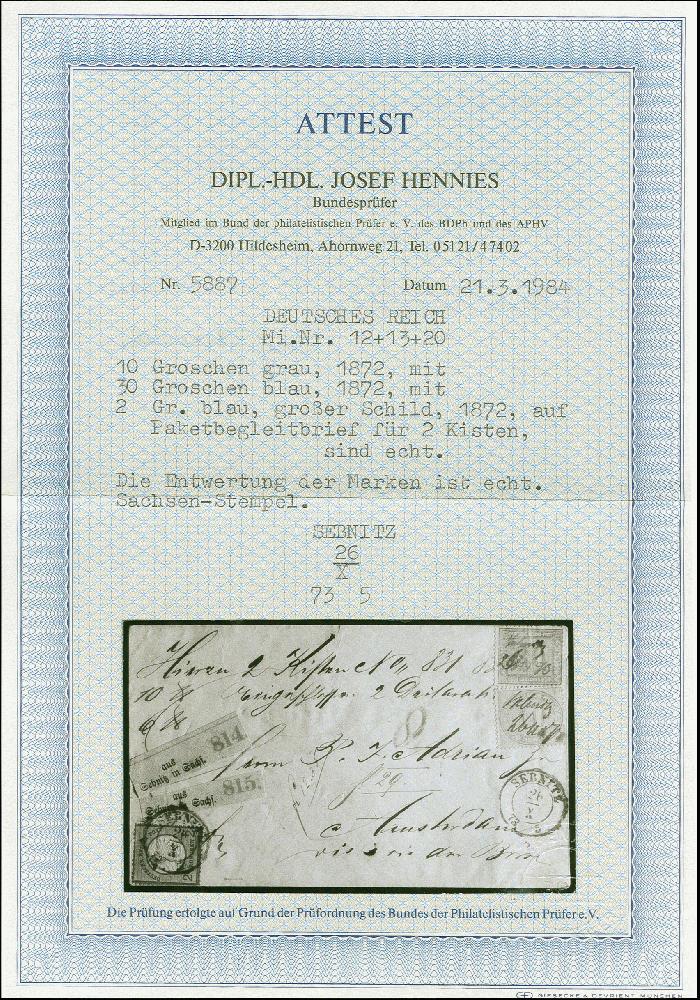 ATTEST
DIPL.-HDL. JOSEF HENNIES
Bundesprüfer
Mitglied im Bund der philatelistischen Prüfer e. V. des BDPh und des APHV
D-3200 Hildesheim, Ahornweg 21, Tel. 05121/47402
Nr. 5887 Datum 21.3.1984
DEUTSCHES REICH
Mi.Nr. 12+13+20
10 Groschen grau, 1872, mit
30 Groschen blau, 1872, mit
2 Gr. blau, großer Schild, 1872, auf
Paketbegleitbrief für 2 Kisten,
sind echt.
Die Entwertung der Marken ist echt.
Sachsen-Stempel.
SEBNITZ
26
X
73 5
Hieran 2 Kisten
2
814.
aus
Sebnitz in Sachs.
815.
aus
Sachs.
Adrian
Amsterdam
SEBNITZ
Die Prüfung erfolgte auf Grund der Prüfordnung des Bundes der Philatelistischen Prüfer e.V.
GIESECKE & DEVRIENT MÜNCHEN